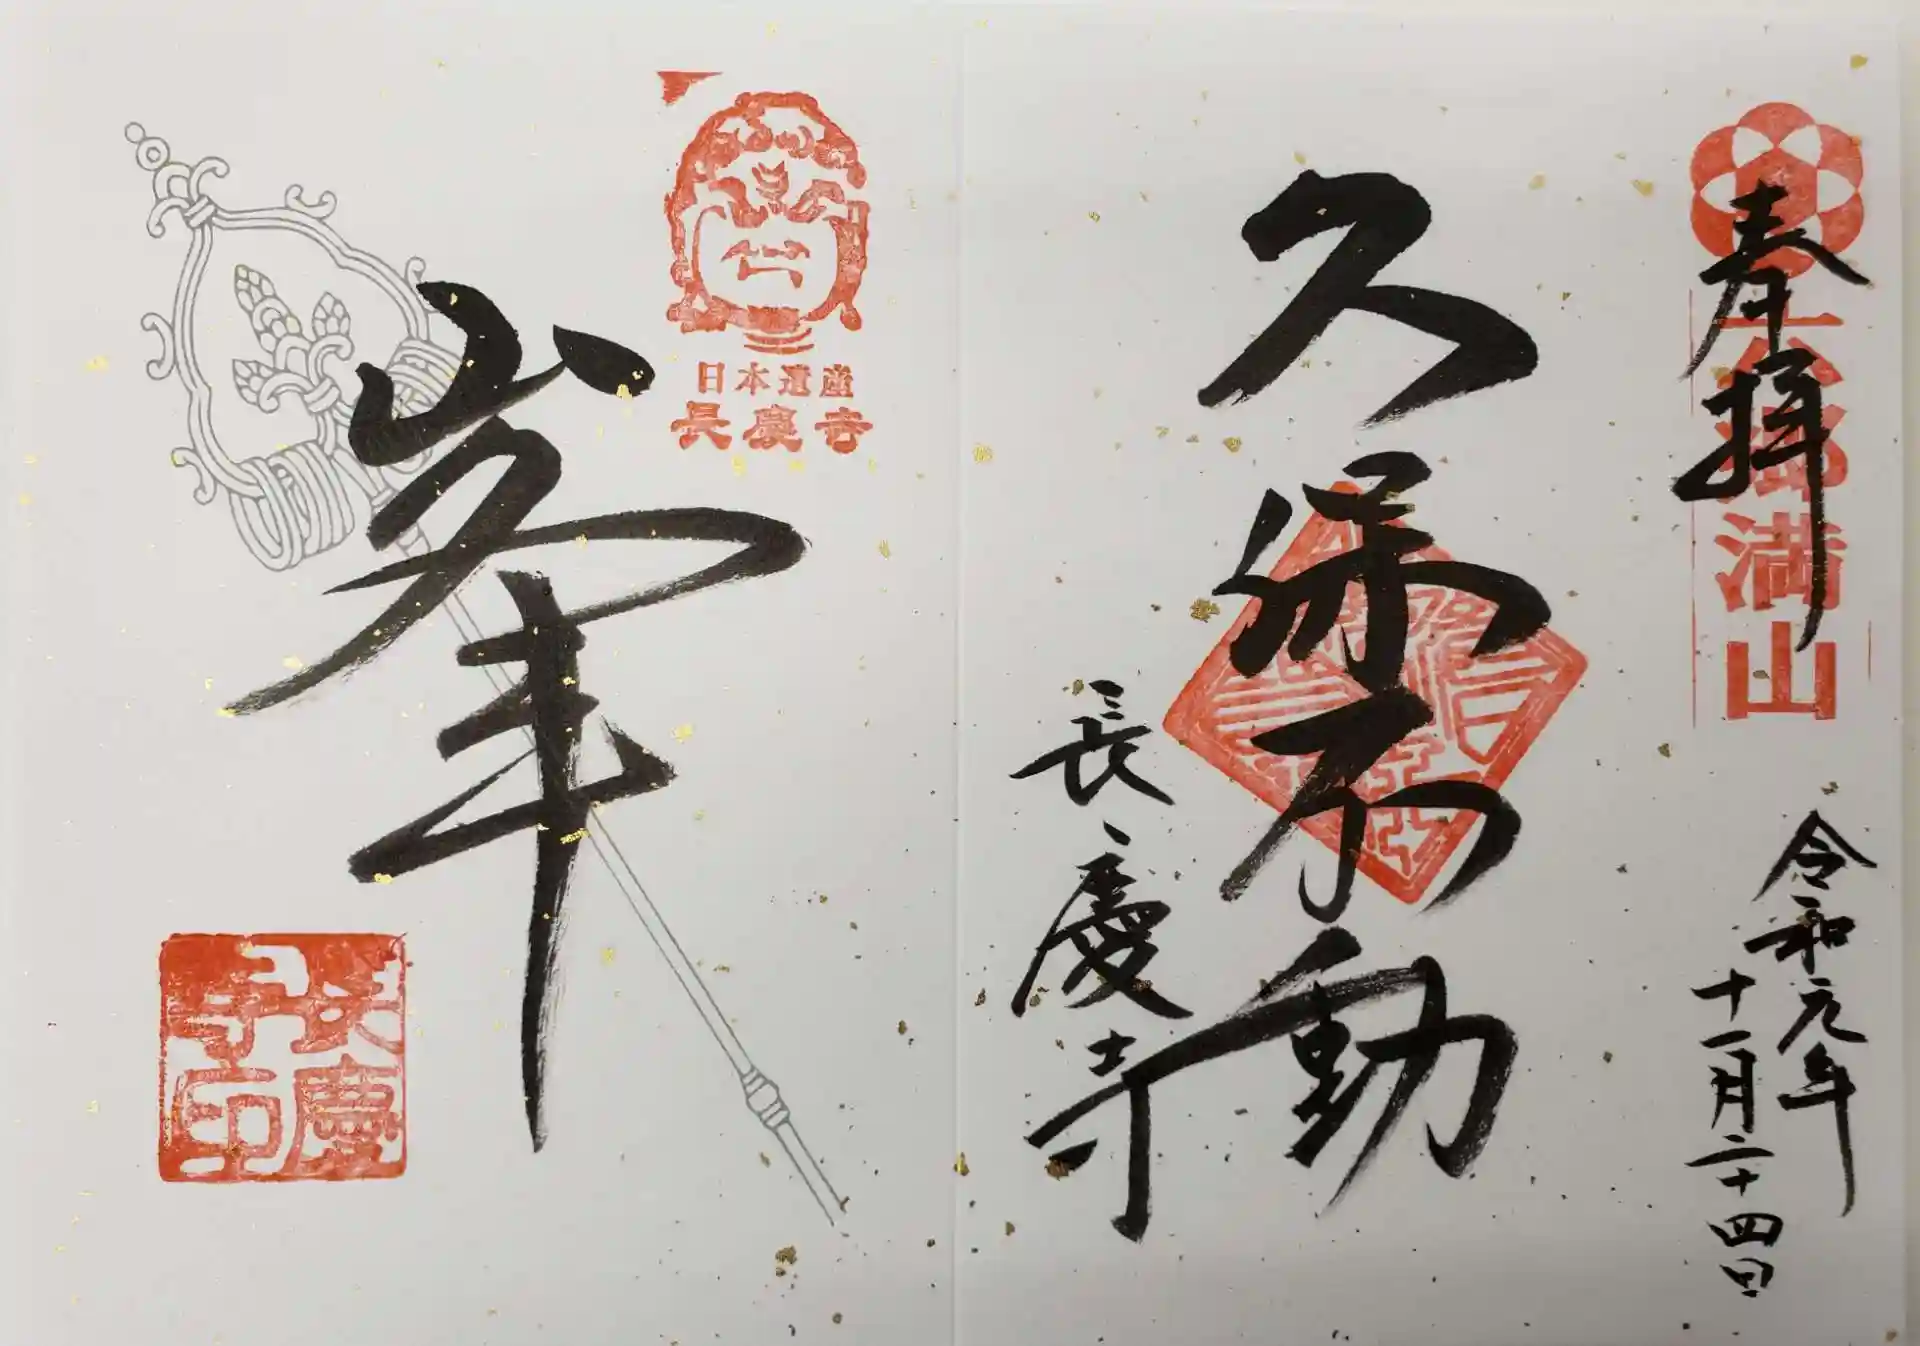 奉拝
六郷満山
令和元年
十一月二十四日
久保不動
長慶寺
日本遺産
長慶寺
峯
長慶
寺印